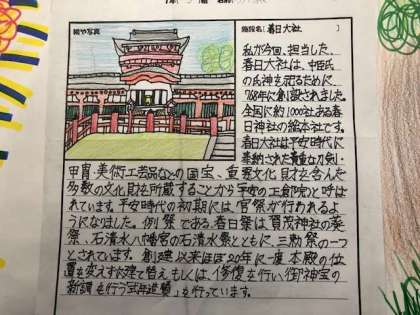 絵や写真
施設名(春日大社)
私が今回、担当した、
春日大社は、中臣氏
の氏神を祀るために
768年に創設されました。
全国に約1000社ある春
日神社の総本社です。
春日大社は平安時代に
奉納された貴重な刀剣・
甲冑・美術工芸品などの国宝、重要文化財を含んだ
多数の文化財を所蔵することから平安の正倉院と呼ば
れています。平安時代の初期には官祭が行われるよ
うになりました。例祭である、春日祭は賀茂神社の葵
祭、石清水八幡宮の石清水祭とともに、三勅祭の一つ
とされています。創建以来ほぼ20年に一度本殿の位
置を変えずに建て替えもしくは、修復を行い御神宝の
新調を行う「式年造替」を行っています。